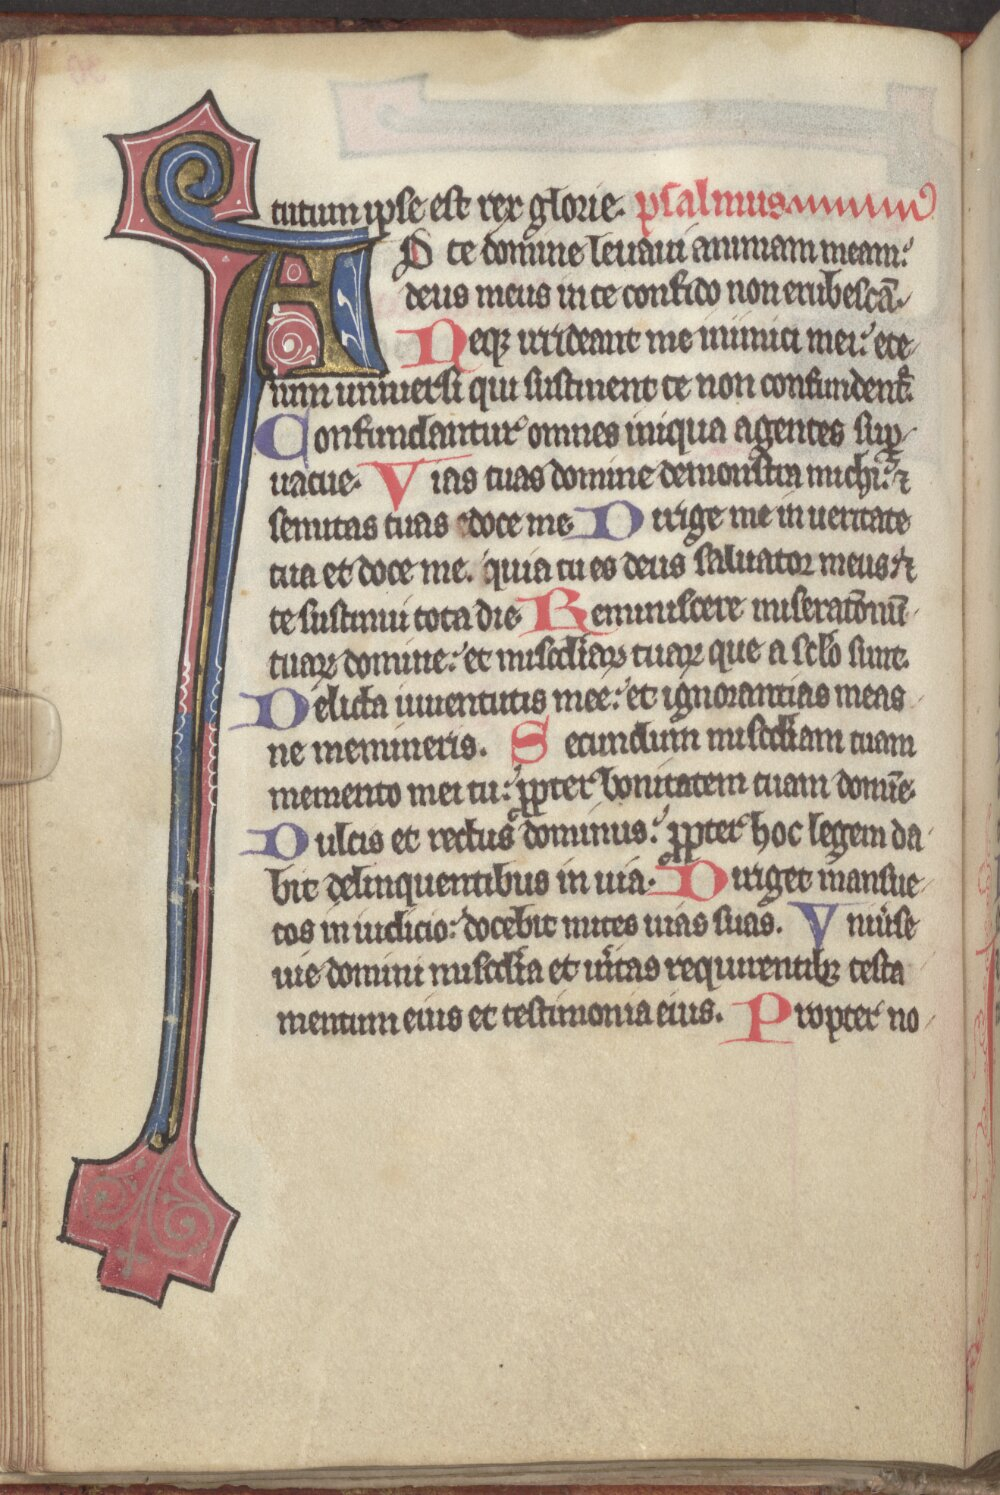 tutum ipse est rex glorie. psalmus
AD te domine levaui animam meam:
deus meus in te confido non erubescā.
Neqꝫ irrideant me inimici mei: ete
nim uniuersi qui sustinent te non confundent᷑.
Confundantur omnes iniqua agentes suꝑ
uacue. Vias tuas domine demonstra michi: ⁊
semitas tuas edoce me Dirige me in ueritate
tua et doce me. quia tu es deus saluator meus ⁊
te sustinui tota die Reminiscere miserat̄onū
tuaꝝ domine: et misc̄diaꝝ tuaꝝ que a sclō sunt.
Delicta iuuentutis mee: et ignorantias meas
ne memineris. Secundum misc̄diam tuam
memento mei tu: ꝓpter bonitatem tuam domīe.
Dulcis et rectus dominus: ꝓpter hoc legem da
bit delinquentibus in uia. Diriget mansue
tos in iudicio: docebit mites uias suas. Vniũse
uie domini misc̄dia et ũitas requirentibꝫ testa
mentum eius et testimonia eius. Propter no